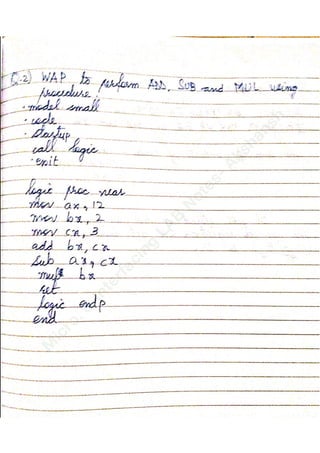 Q.2) WAP to perform ADD, SUB and MUL using
procedure.
.model small
.code
.startup
call logic
.exit
logic proc near
mov ax, 12
mov bx, 2
mov cx, 3
add bx, cx
sub ax, cx
mul bx
ret
logic endp
end